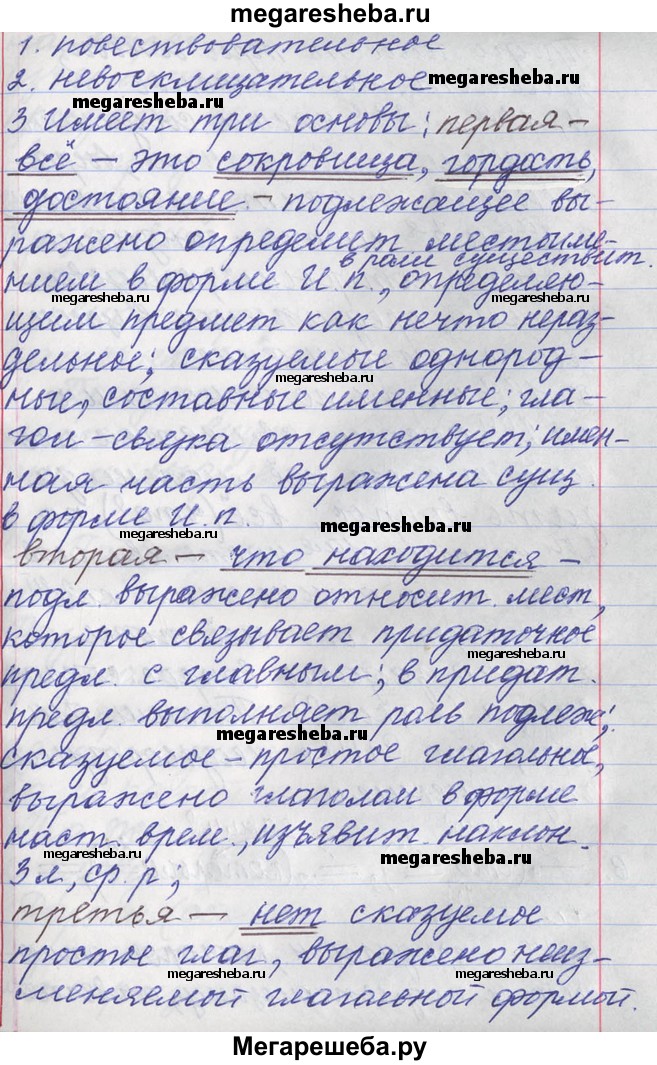 megaresheba.ru
1. повествовательное
2. невосклицательное
megaresheba.ru
3 Имеет три основы: первая –
megaresheba.ru
всё – это сокровища, гордость,
достояние – подлежащее вы-
ражено определит местоиме-
в роли существит.
нием в форме И.п., определяю-
megaresheba.ru
megaresheba.ru
щим предмет как нечто нераз-
дельное; сказуемые однород-
megaresheba.ru
ные, составные именные; гла-
гол-связка отсутствует; имен-
ная часть выражена сущ.
в форме И.п.
megaresheba.ru
вторая – что находится –
подл. выражено относит. мест,
которое связывает придаточное
megaresheba.ru
предл. с главным; в придат.
предл. выполняет роль подлеж;
megaresheba.ru
сказуемое – простое глагольное,
выражено глаголом в форме
наст. врем., изъявит. наклон.
megaresheba.ru
3 л, ср. р,
третья – нет сказуемое
простое глаг, выражено неиз-
megaresheba.ru
megaresheba.ru
меняемой глагольной формой.
Мегарешеба.ру